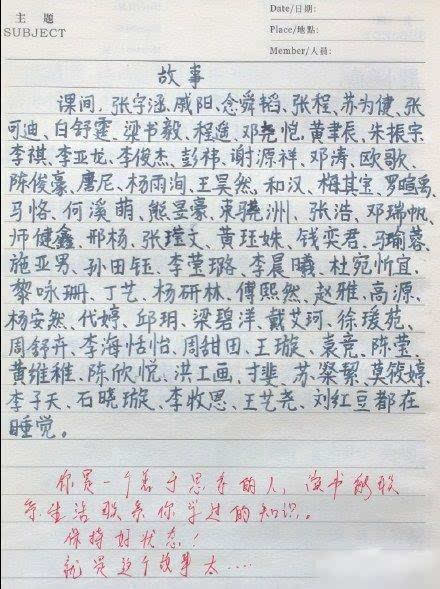 主 题
SUBJECT
Date/日期:
Place/地點:
Member/人員:
故事
课间,张宇涵、戚阳、念舜韬、张程、苏为健、张
可迪、白舒霆、梁书毅、程逸、邓尧恺、黄聿辰、朱振宗、
李祺、李亚龙、李俊杰、彭祎、谢源祥、邓涛、欧歌、
陈俊豪、唐尼、杨雨洵、王昊然、和汉、梅其宝、罗暄禹、
马恪、何溪萌、熊昱豪、束骁洲、张浩、邓瑞帆、
师健鑫、邢杨、张瑾文、黄珏姝、钱奕君、马瑜蓉、
施亚男、孙田钰、李莹璐、李晨曦、杜宛忻宜、
黎咏珊、丁艺、杨研林、傅熙然、赵雅、高源、
杨安然、代婷、邱玥、梁碧洋、戴艾珂、徐瑗苑、
周舒卉、李海恬怡、周甜田、王璇、袁竞、陈莹、
黄维稚、陈欣悦、洪工画、甘斐、苏粲絜、莫筱婷、
李子天、石晓璇、李牧思、王艺尧、刘红豆都在
睡觉。
你是一个善于思考的人,读书能联
系生活联系你学过的知识。
保持好状态!
就是这个故事太....